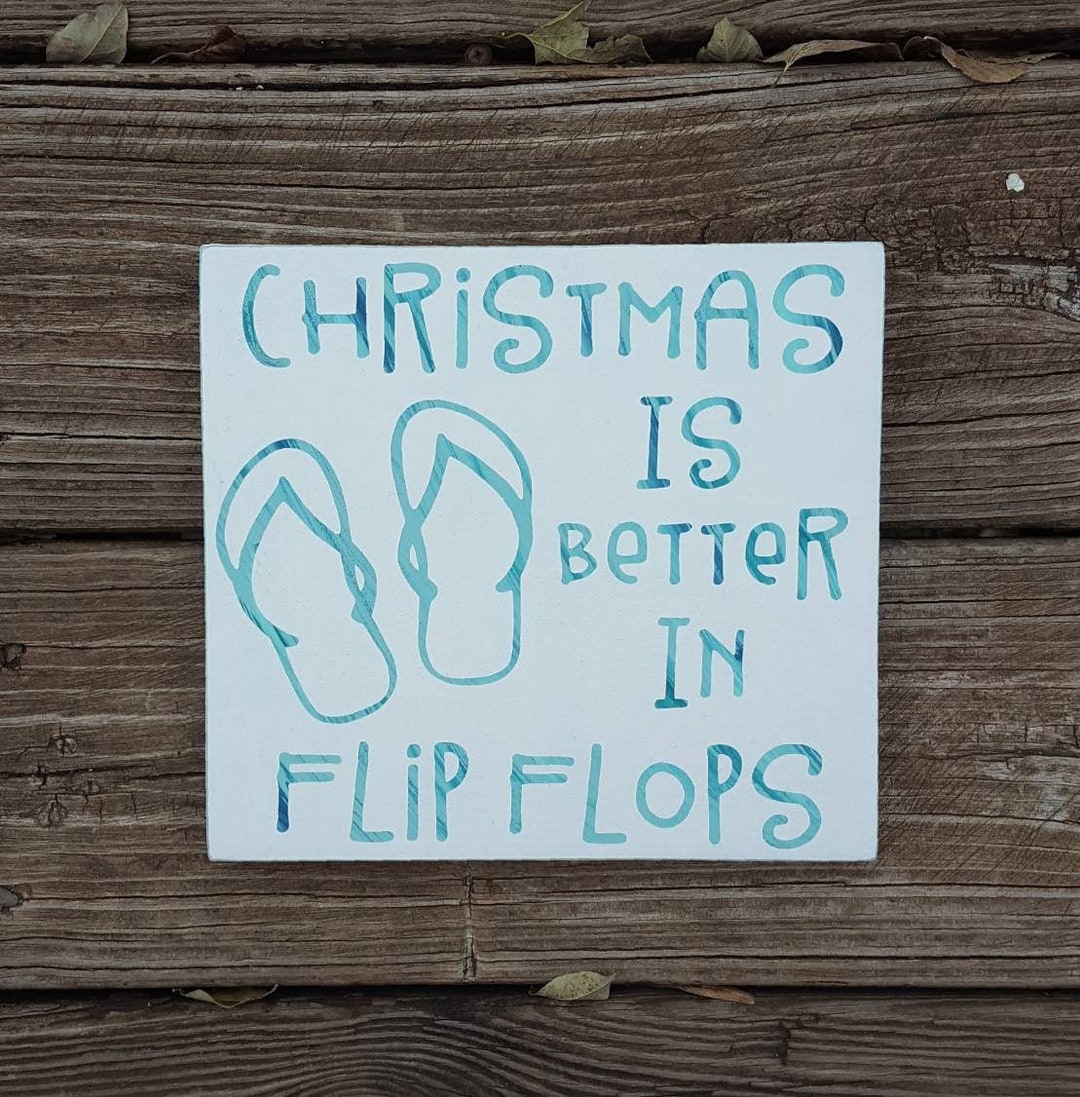 CHRiSTMAS
IS
BeTTeR
IN
FLiP FLOPS